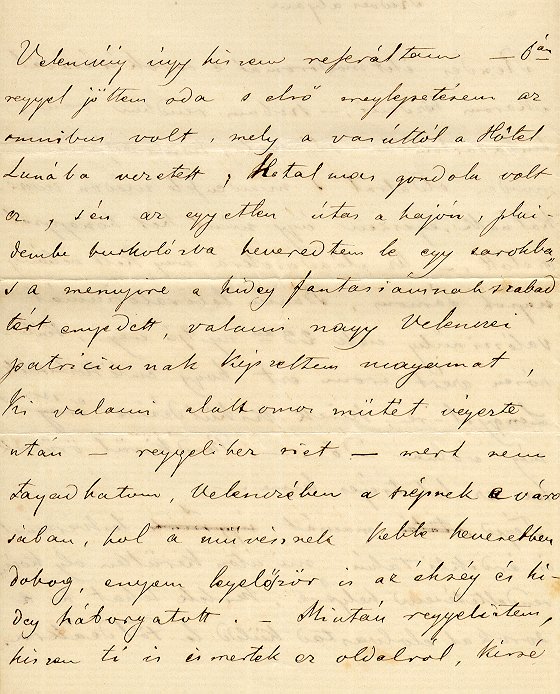 Velenczéig úgy hiszem referáltam — 6án
reggel jöttem oda s első meglepetésem az
omnibus volt, mely a vasúttól a Hôtel
Lunába vezetett, Hatalmas gondola volt
ez, s én az egyetlen útas a hajón, plai-
dembe burkolózva heveredtem le egy sarokba,
s a mennyire a hideg fantasiámnak szabad
tért engedett, valami nagy Velenczei
patriciusnak képzeltem magamat,
Ki valami alattomos műtét végezte
után — reggelihez siet — mert nem
tagadhatom, Velenczében a szépnek e váro
sában, hol a művésznek keble hevesebben
dobog, engem legelőször is az éhség és hi-
deg háborgatott. — Miután reggeliztem,
hiszen ti is ismertek ez oldalról, kissé